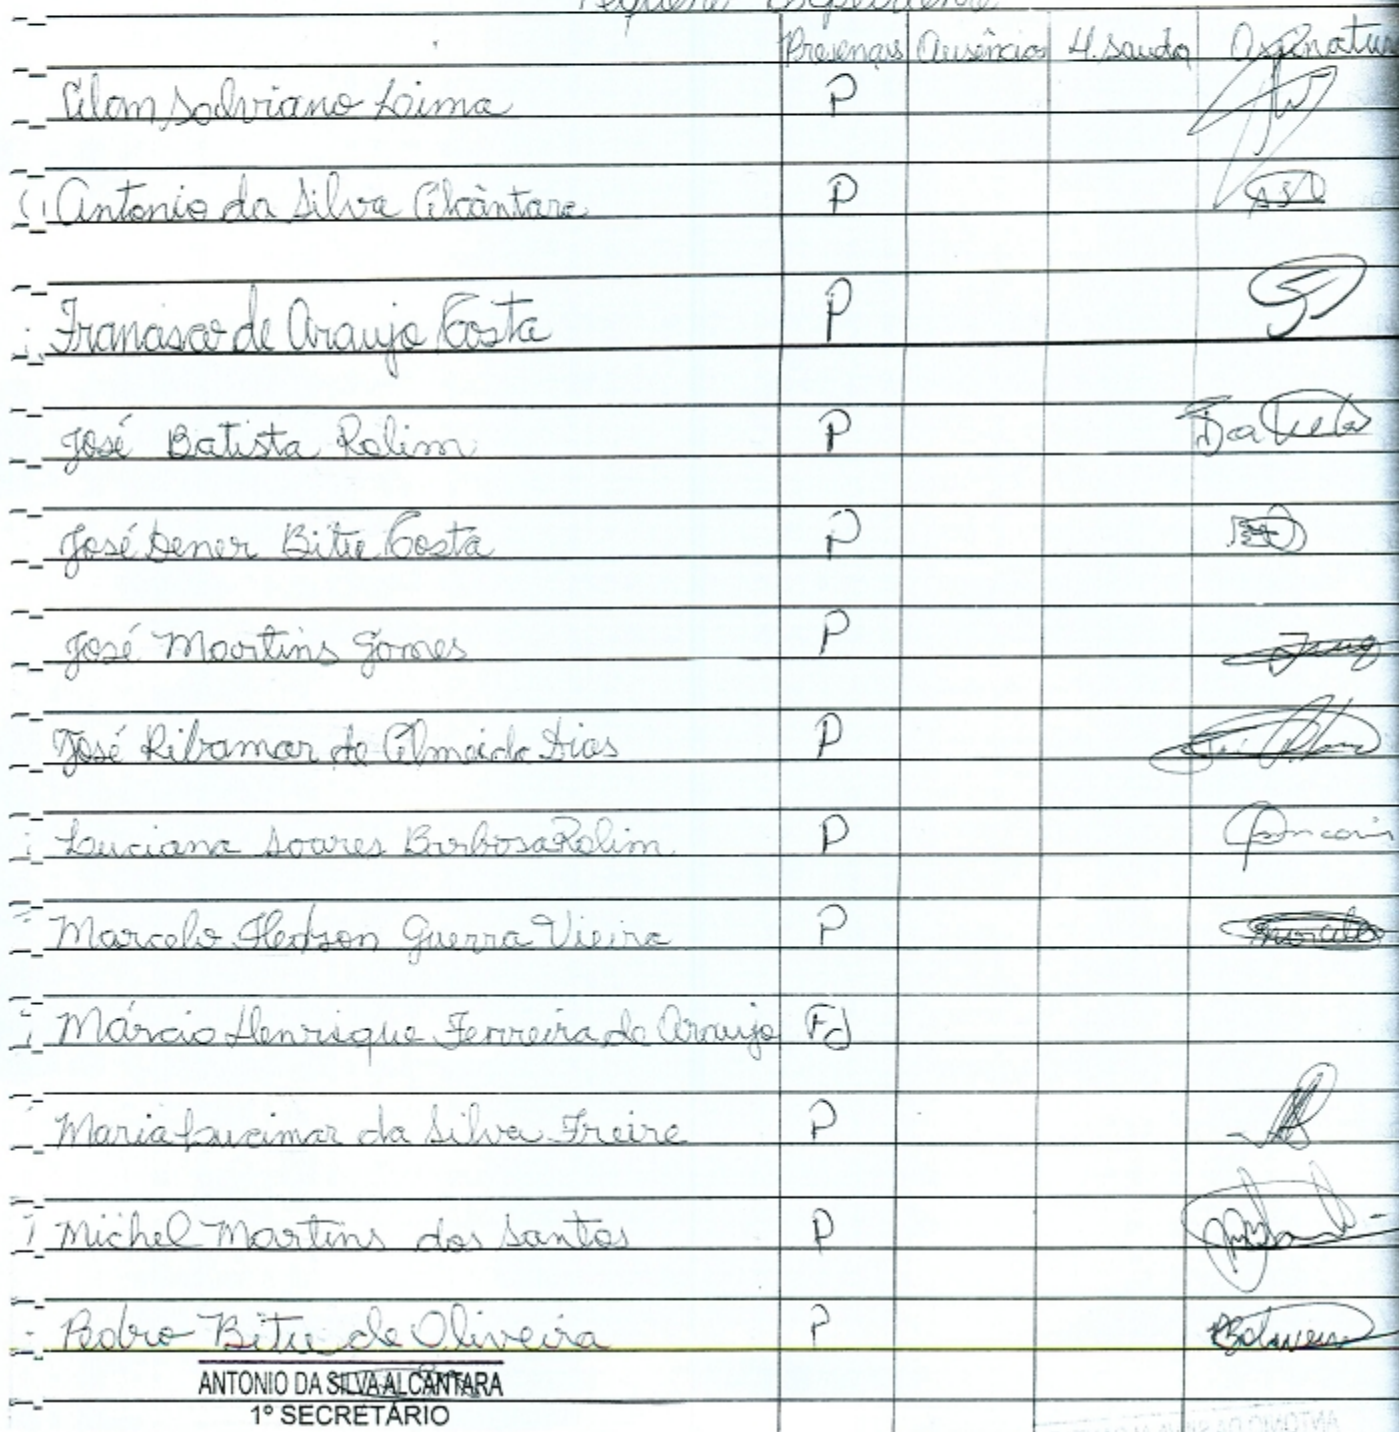 Pequeno Expediente
Presenças Ausências H. saída Assinatura
Alan Salviano Lima P
Antonio da Silva Alcântara P ASA
Francisco de Araujo Costa P
José Batista Rolim P Batista
José Dener Bitu Costa P
José Martins Gomes P
José Ribamar de Almeida Dias P
Luciana Soares Barbosa Rolim P
Marcelo Hedson Guerra Vieira P Marcelo
Márcio Henrique Ferreira de Araujo FJ
Maria Lucimar da Silva Freire P
Michel Martins dos Santos P
Pedro Bitu de Oliveira P
ANTONIO DA SILVA ALCANTARA
1º SECRETÁRIO